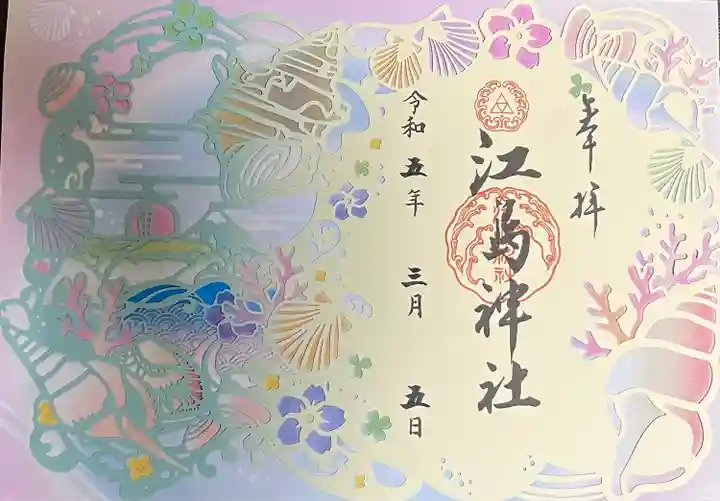 奉拝
江島神社
令和五年 三月 五日